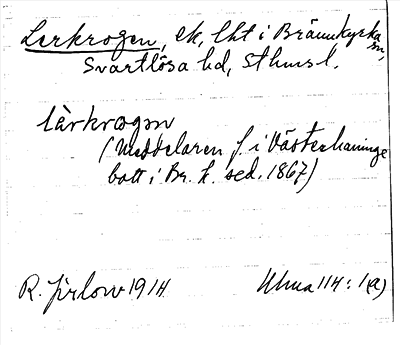 Lerkrogen, ek, lht i Brännkyrka sn,
Svartlösa hd, Sthms l.
lèrkrogɘn
(Meddelaren f. i Västerhaninge
bott i Br. k. sed. 1867)
R. Jirlow 1914 Ulma 114:1(a)